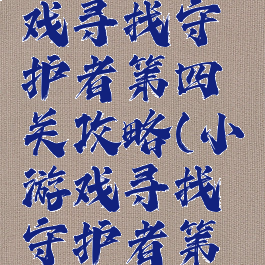 戏寻找守
护者第四
关攻略(小
游戏寻找
守护者第